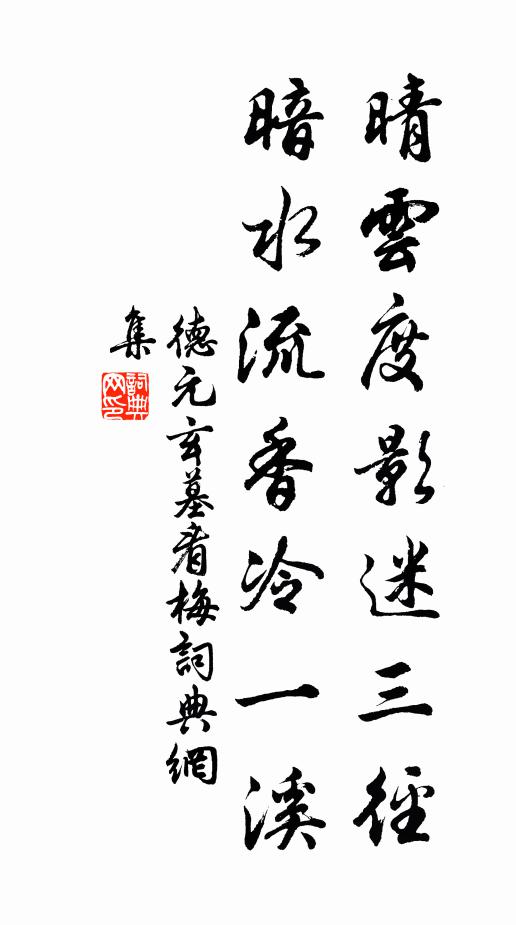 晴雲度影迷三徑
暗水流香冷一溪
德元玄墓看梅詞典網
集
詞典
网印